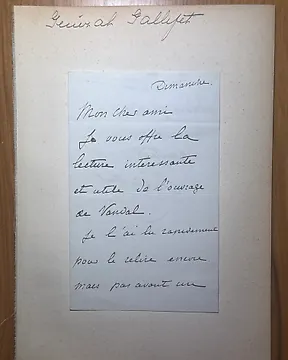 Général Gallifet
Dimanche.
Mon cher ami
Je vous offre la
lecture interessante
et utile de l'ouvrage
de Vandal.
Je l'ai lu rapidement
pour le relire encore
mais pas avant un